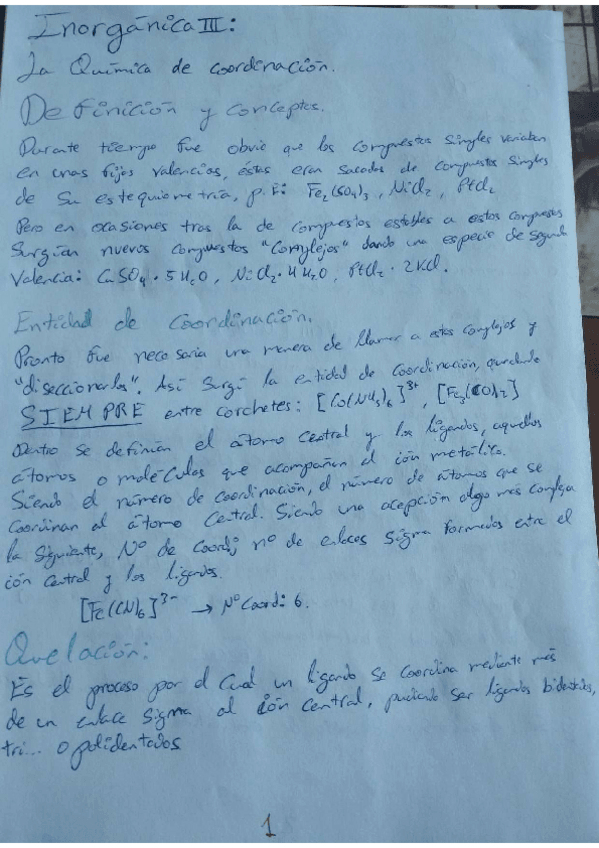 Inorgánica III:
La Química de coordinación.
Definición y conceptos.
Durante tiempo fue obvio que los compuestos simples variaban
en unas fijas valencias, éstas eran sacadas de compuestos simples
de su estequiometría, p.E: Fe₂(SO₄)₃, NiCl₂, PtCl₂
Pero en ocasiones tras la de compuestos estables a estos compuestos
Surgían nuevos compuestos "Complejos" dando una especie de segunda
Valencia: CuSO₄·5H₂O, NiCl₂·4H₂O, PtCl₂·2KCl.
Entidad de Coordinación.
Pronto fue necesaria una manera de llamar a estos complejos y
"diseccionarlos". Así surgió la entidad de coordinación, quedando
SIEMPRE entre corchetes: [Co(NH₃)₆]³⁺, [Fe₃(CO)₁₂]
Dentro se definían el átomo Central y los ligandos, aquellos
átomos o moléculas que acompañan al ión metálico.
Siendo el número de coordinación, el número de átomos que se
Coordinan al átomo Central. Siendo una acepción algo más compleja
la siguiente, Nº de Coord; nº de enlaces sigma formados entre el
ión Central y los ligandos.
[Fe(CN)₆]³⁻ → Nº Coord: 6.
Quelación:
Es el proceso por el cual un ligando se coordina mediante más
de un enlace sigma al ión central, pudiendo ser ligandos bidentados,
tri... o polidentados
1